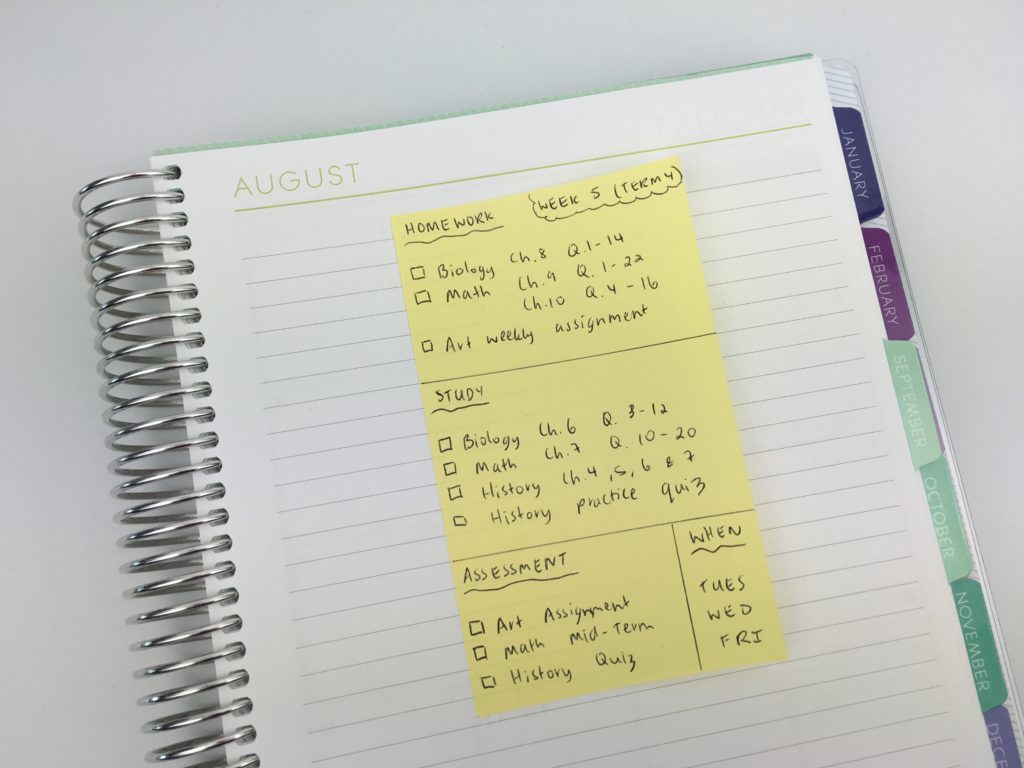 AUGUST
HOMEWORK WEEK 5 (TERM 4)
Biology Ch.8 Q.1-14
Math Ch.9 Q.1-22
Ch.10 Q.4-16
Art weekly assignment
STUDY
Biology Ch.6 Q.3-12
Math Ch.7 Q.10-20
History Ch.4,5,6 & 7
History practice quiz
ASSESSMENT WHEN
Art Assignment TUES
Math Mid-Term WED
History Quiz FRI
JANUARY
FEBRUARY
SEPTEMBER
OCTOBER
NOVEMBER
DECE